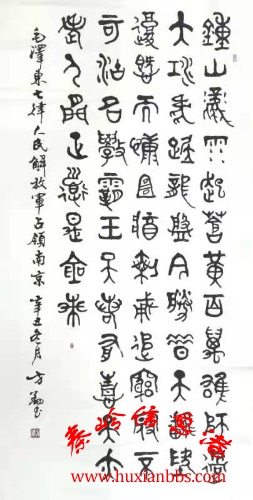 鍾山風雨起蒼黃百萬雄師過
大江虎踞龍盤今勝昔天翻地
覆慨而慷宜將剩勇追窮寇不
可沽名學霸王天若有情天亦
老人間正道是滄桑
毛澤東七律人民解放軍占領南京 辛丑冬月 方
www.huxianbbs.com